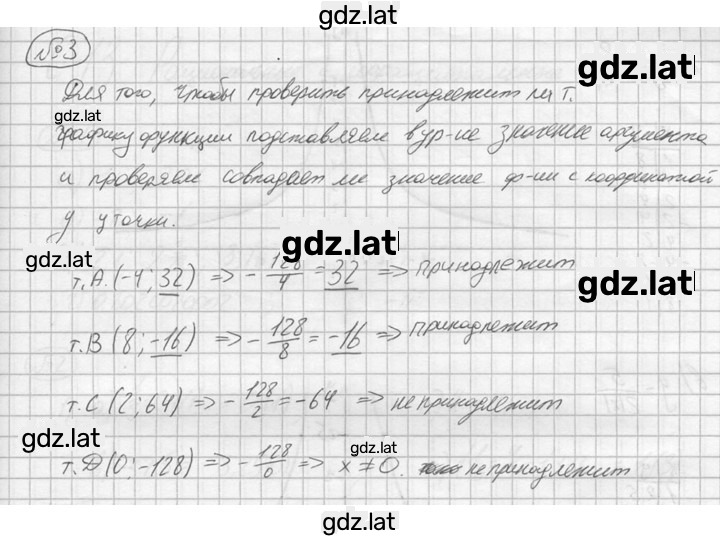 gdz.lat
№3
gdz.lat
Для того, чтобы проверить принадлежит ли т.
gdz.lat
графику функции подставляем в ур-ие значение аргумента
и проверяем совпадает ли значение ф-ии с координатой
y у точки.
gdz.lat
gdz.lat
т.А.(-4; 32) => - 128/4 = 32 => принадлежит
gdz.lat
т.В (8; -16) => - 128/8 = -16 => принадлежит
т.С (2; 64) => - 128/2 = -64 => не принадлежит
gdz.lat
gdz.lat
т.D(0; -128) => - 128/0 => x ≠ 0. не принадлежит
gdz.lat